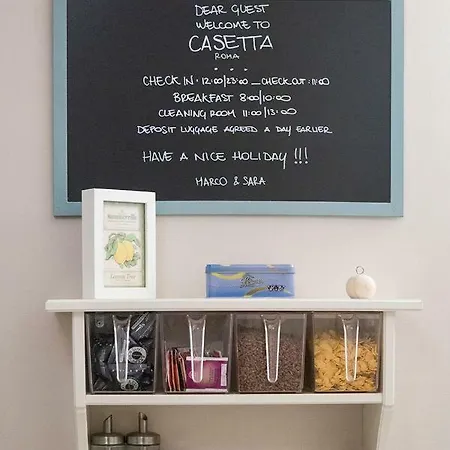 DEAR GUEST
WELCOME TO
CASETTA
ROMA
CHECK IN : 12:00/23:00 _ CHECK OUT : 11:00
BREAKFAST 8:00/10:00
CLEANING ROOM 11:00/13:00
DEPOSIT LUGGAGE AGREED A DAY EARLIER
HAVE A NICE HOLIDAY !!!
MARCO & SARA